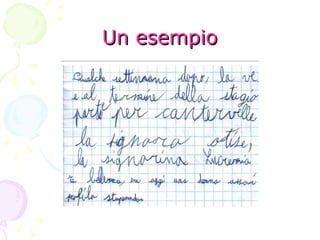 Un esempio
Qualche settimana dopo, la ve
e al termine della stagio
parte per canterville
la signora otise,
la signorina Lucrezia
bellezza, era oggi una donna assai
profila stupendo